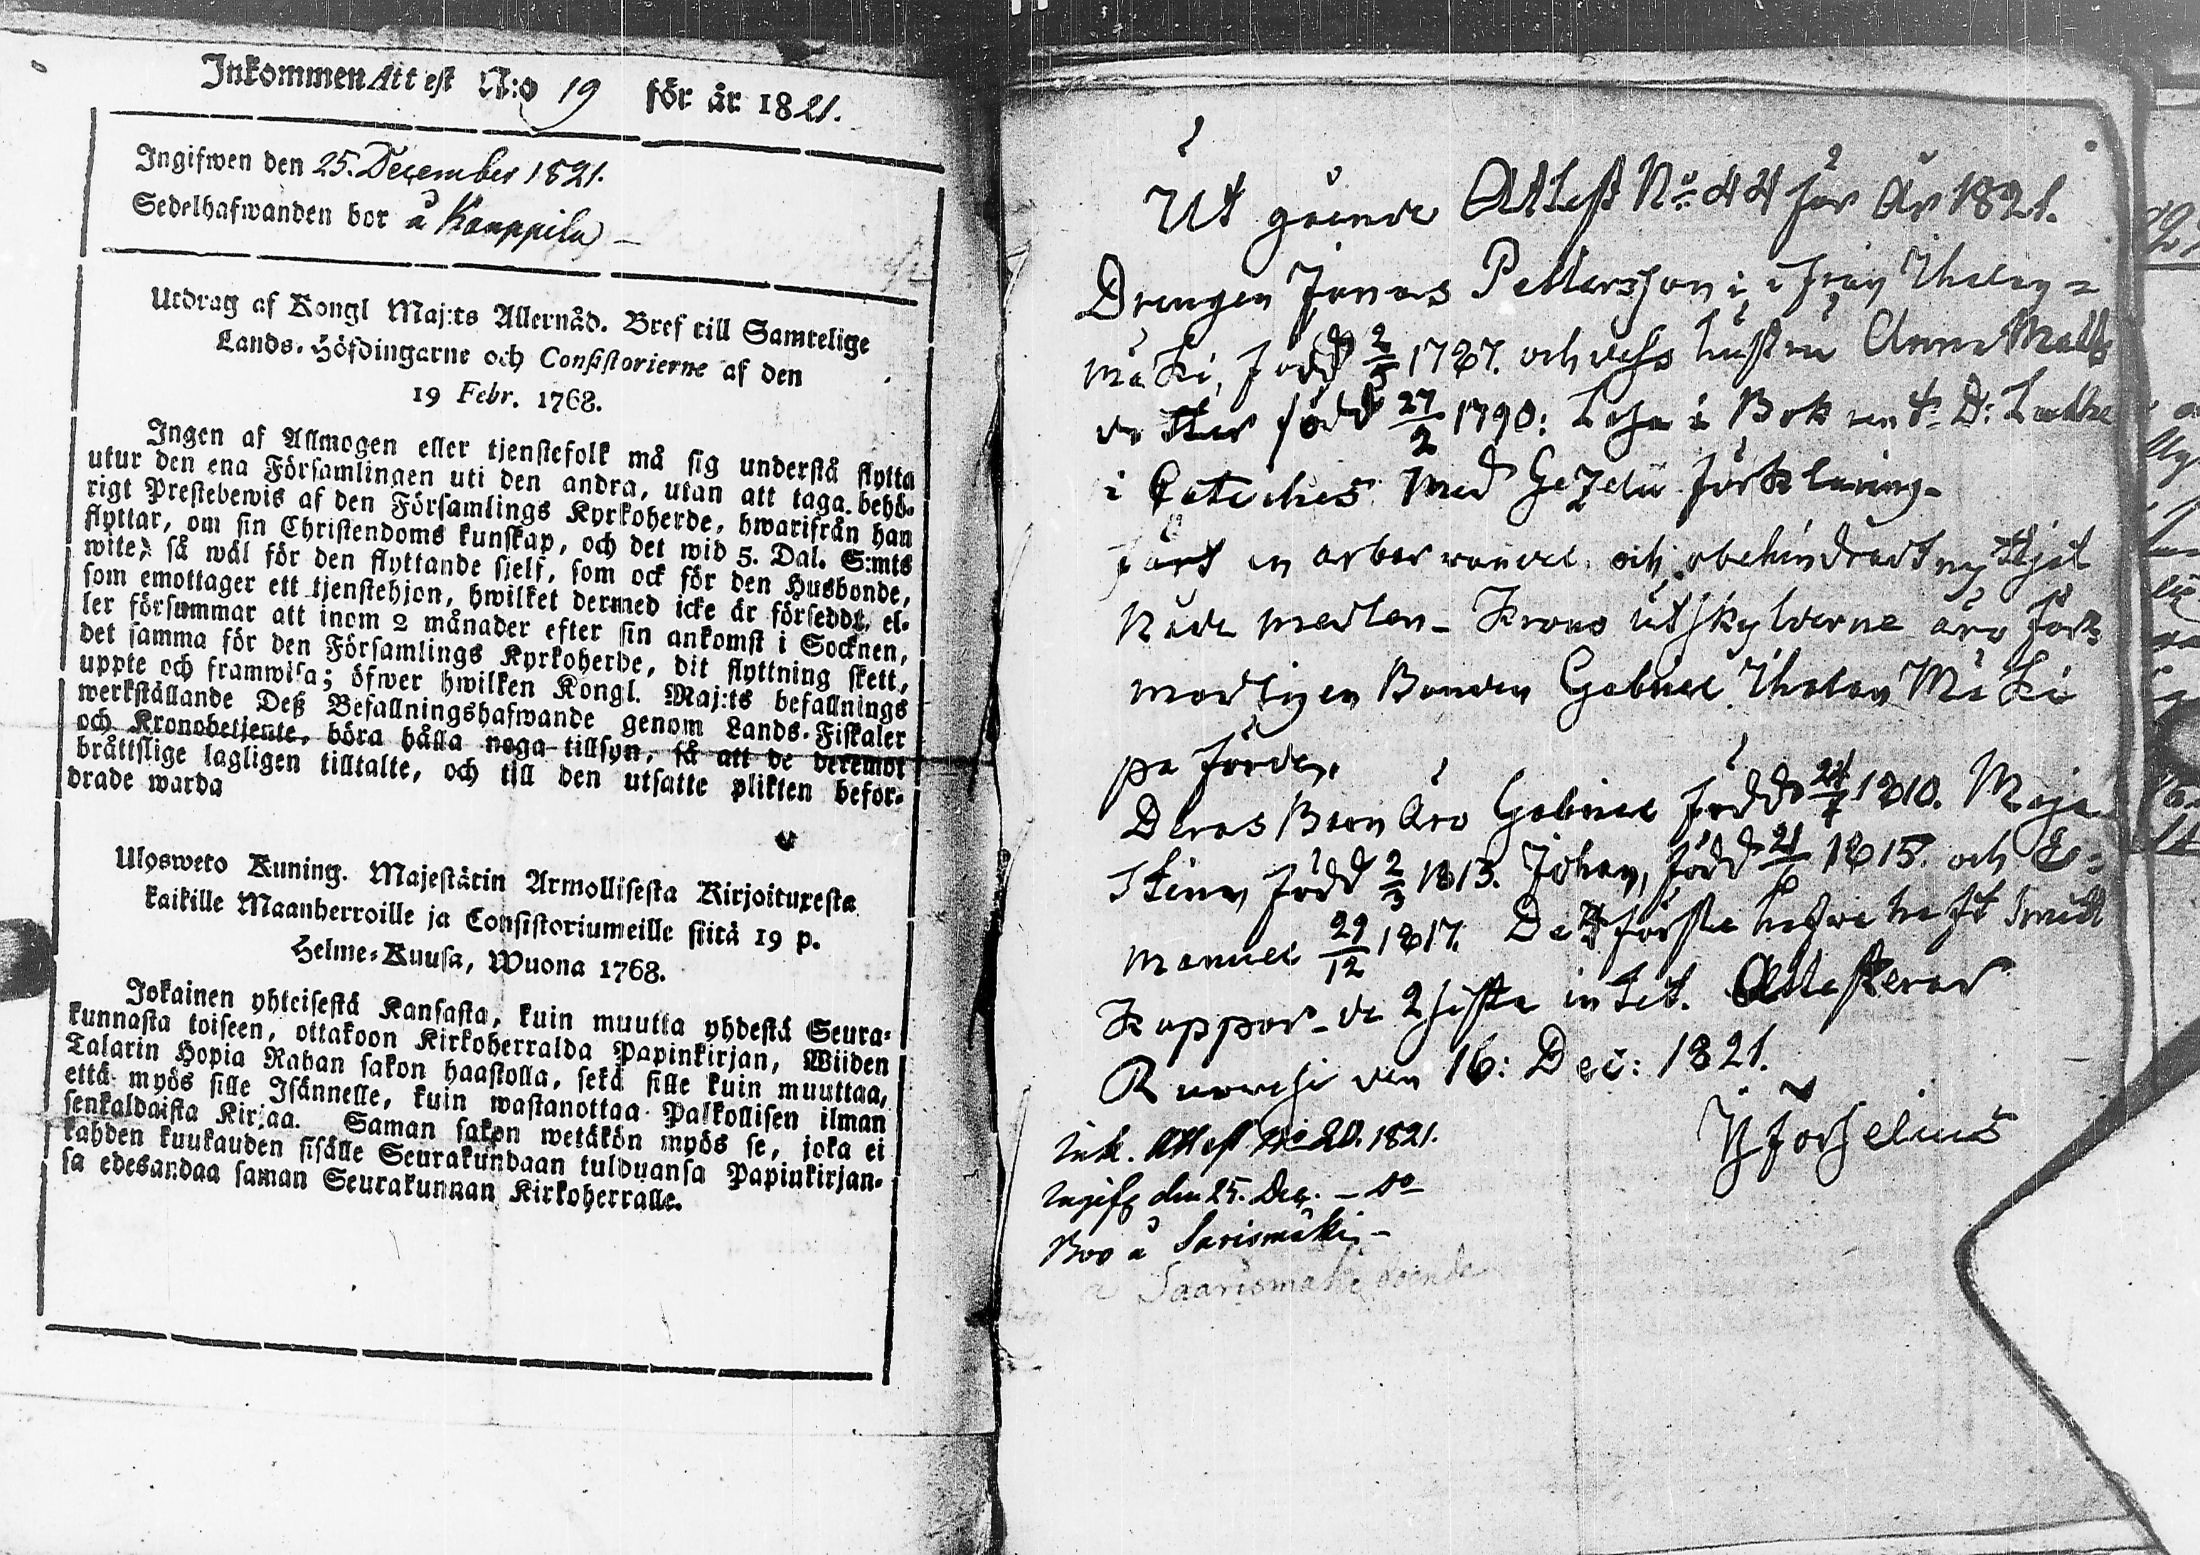 Inkommen Attest N:o 19 för år 1821.
Ingifwen den 25. December 1821.
Sedelhafwanden bor å Kauppila
Utdrag af Kongl Maj:ts Allernåd. Bref till Samtelige
Lands-Höfdingarne och Consistorierne af den
19 Febr. 1768.
Ingen af Allmogen eller tjenstefolk må sig understå flytta
utur den ena Församlingen uti den andra, utan att taga behö-
rigt Prestebewis af den Församlings Kyrkoherde, hwarifrån han
flyttar, om sin Christendoms kunskap, och det wid 5. Dal. S:mts
wite, så wäl för den flyttande sielf, som ock för den Husbonde,
som emottager ett tjenstehjon, hwilket dermed icke är försedt, el-
ler försummar att inom 2 månader efter sin ankomst i Socknen,
det samma för den Församlings Kyrkoherde, dit flyttning skett,
uppte och framwisa; öfwer hwilken Kongl. Maj:ts befallnings
werkställande Deß Befallningshafwande genom Lands-Fiskaler
och Kronobetjente, böra hålla noga tillsyn, så att de deremot
bråttslige lagligen tilltalte, och till den utsatte plikten befor-
drade warda
Ulosweto Kuning. Majestätin Armollisesta Kirjoituxesta
kaikille Maanherroille ja Consistoriumeille siitä 19 p.
Helme-Kuusa, Wuona 1768.
Jokainen yhteisestä Kansasta, kuin muutta yhdestä Seura-
kunnasta toiseen, ottakoon Kirkoherralda Papinkirjan, Wiiden
Talarin Hopia Rahan sakon haastolla, sekä sille kuin muuttaa,
että myös sille Isännelle, kuin wastanottaa Palkollisen ilman
senkaldaista Kirjaa. Saman sakon wetäkön myös se, joka ei
kahden kuukauden sisälle Seurakundaan tulduansa Papinkirjan-
sa edesandaa saman Seurakunnan Kirkoherralle.
Ut gående Attest No 44 för År 1821.
Drengen Jonas Pettersson ifrån Thalen=
mäki, född 2/3 1787. och dess hustru Anna Matts
dotter född 27/2 1790: Läsa i Bok
i Cateches med Gezelii förklaring
fört en ärbar wandel och obehindradt nyttjat
Nåde medlen - Krono utskylderne äro
Bonden Gabriel Thalen Mäki
på förden.
Deras Barn äro Gabriel född 24/7 1810. Maja
Stina född 2/3 1813. Johan, född 21/ 1815. och E=
manuel 29/12 1817. De förste hafwa haft
Koppor de 2 siste intet. Attesterar
Ruowesi den 16: Dec: 1821.
Ink. Attest No 20. 1821.
Ingifv den 25. Dec. - do
Boo å Sarismäki -
a Saarismäki boende